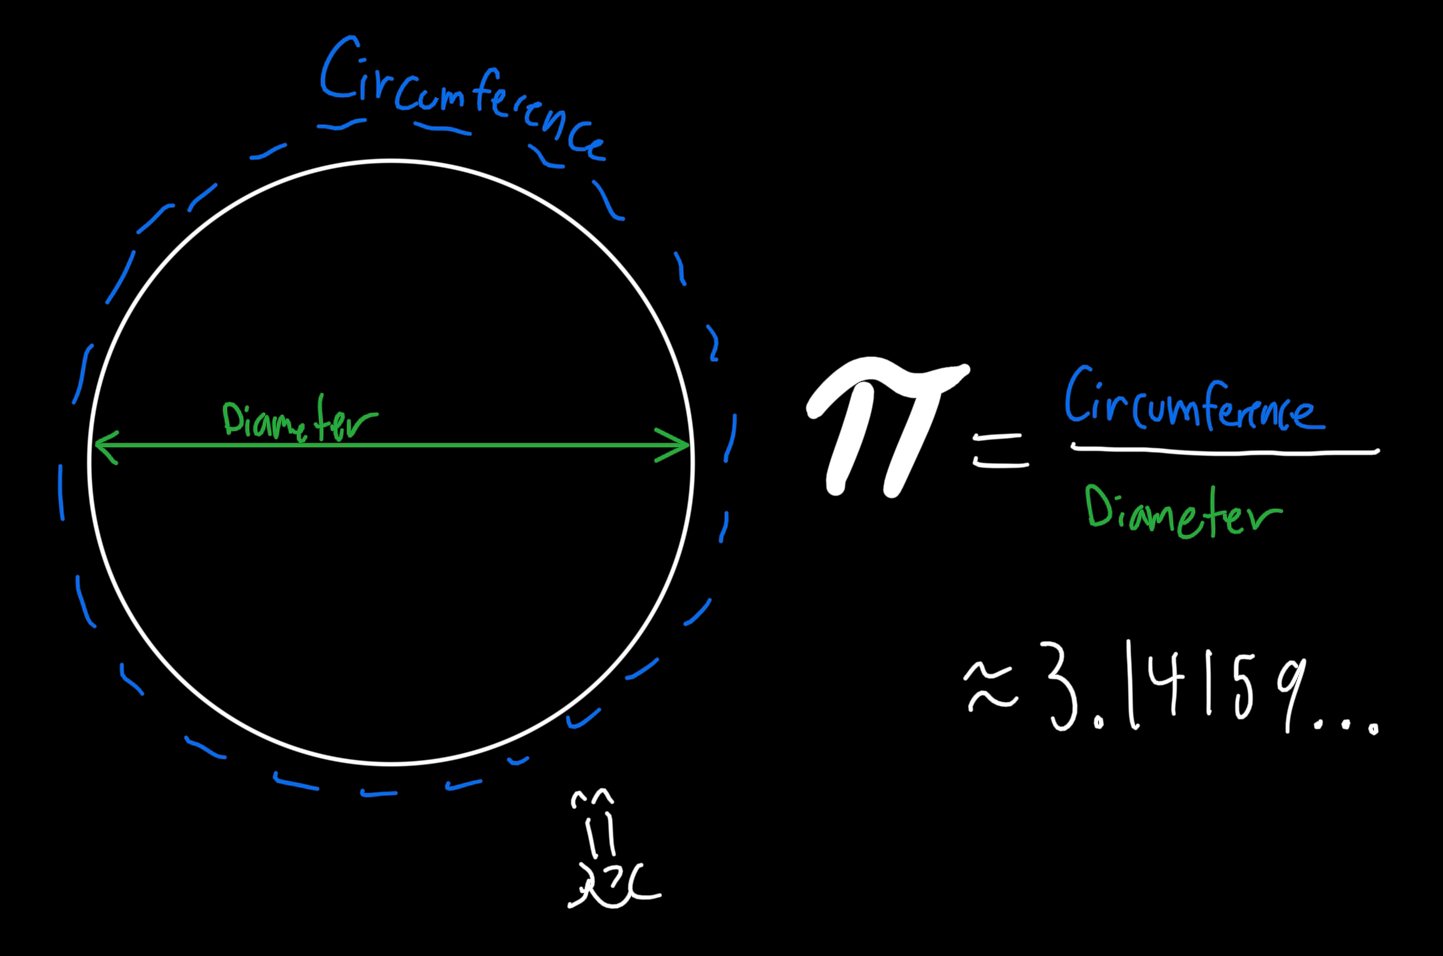 Circumference
Diameter
π = Circumference
Diameter
≈ 3.14159...